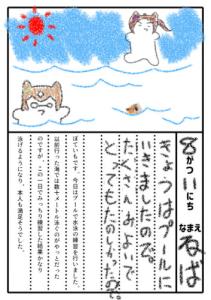 8がつ11にち
なまえ ねば
きょうはプールに
いきましたのだ。
たくさんおよいで
とってもたのしかったのだ。
ぼていもです。今日はプールで水泳の練習を行いました。
以前行った海では数十メートル泳ぐのがやっとだった
のですが、この一日でみっちり練習した結果かなり
泳げるようになり、本人も満足そうでした。